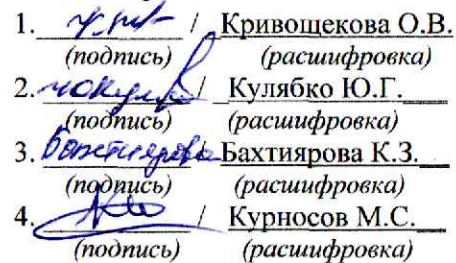 1. / Кривощекова О.В.
(подпись) (расшифровка)
2. / Кулябко Ю.Г.
(подпись) (расшифровка)
3. Бахтиярова Бахтиярова К.З.
(подпись) (расшифровка)
4. / Курносов М.С.
(подпись) (расшифровка)